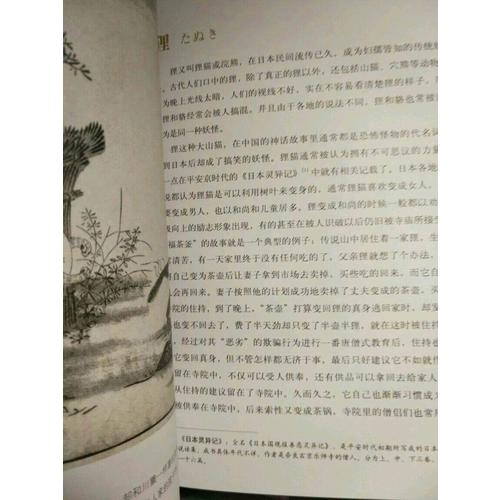 狸 たぬき
狸又叫狸猫或浣熊，在日本民间流传已久，成为妇孺皆知的传统
。古代人们口中的狸，除了真正的狸以外，还包括山猫、穴熊等动物
为晚上光线太暗，人们的视线不好，实在不容易看清楚狸的样子，
狸和貉经常会被人搞混。并且由于各地的说法不同，狸和貉也常被
为是同一种妖怪。
狸这种大山猫，在中国的神话故事里通常都是恐怖怪物的代名
到日本后却成了搞笑的妖怪。狸猫通常被认为拥有不可思议的力
一点在平安京时代的《日本灵异记》[1]中就有相关记载了。日本各地
说都认为狸猫是可以利用树叶来变身的，通常狸猫喜欢变成女人，
要变成男人，也以和尚和儿童居多。狸变成和尚的时候一般都以
极向上的励志形象出现，有的甚至在被人识破以后仍旧被寺庙所接
福茶釜”的故事就是一个典型的例子：传说山中居住着一家狸，生
清苦，有一天家里终于没有任何吃的了，父亲狸就想了个办法，
自己变为茶壶后让妻子拿到市场去卖掉，买些吃的回来，而它自
机会再回来。妻子按照他的计划成功地卖掉了丈夫变成的茶壶。
院的住持，到了晚上，“茶壶”打算变回狸的真身逃回家时，却发
也变不回去了，费了半天劲却只变了半壶半狸，就在这时被住持
，经过对其“恶劣”的欺骗行为进行一番唐僧式教育后，住持也
它变回真身，但不管怎样都无济于事，最后只好建议它不如就
在寺院中，不仅可以受人供奉，还有供品可以拿回去给家人
从住持的建议留在了寺院中。久而久之，它自己也渐渐习惯成
被供奉在寺院中，后来索性又变成茶锅，寺院里的僧侣们也常
《日本灵异记》：全名《日本国现报善恶灵异记》，是平安时代初期所写成的日本
说话集，成书具体年代不详，作者是奈良右京药师寺的僧人，分为上、中、下三卷，
一十六篇。